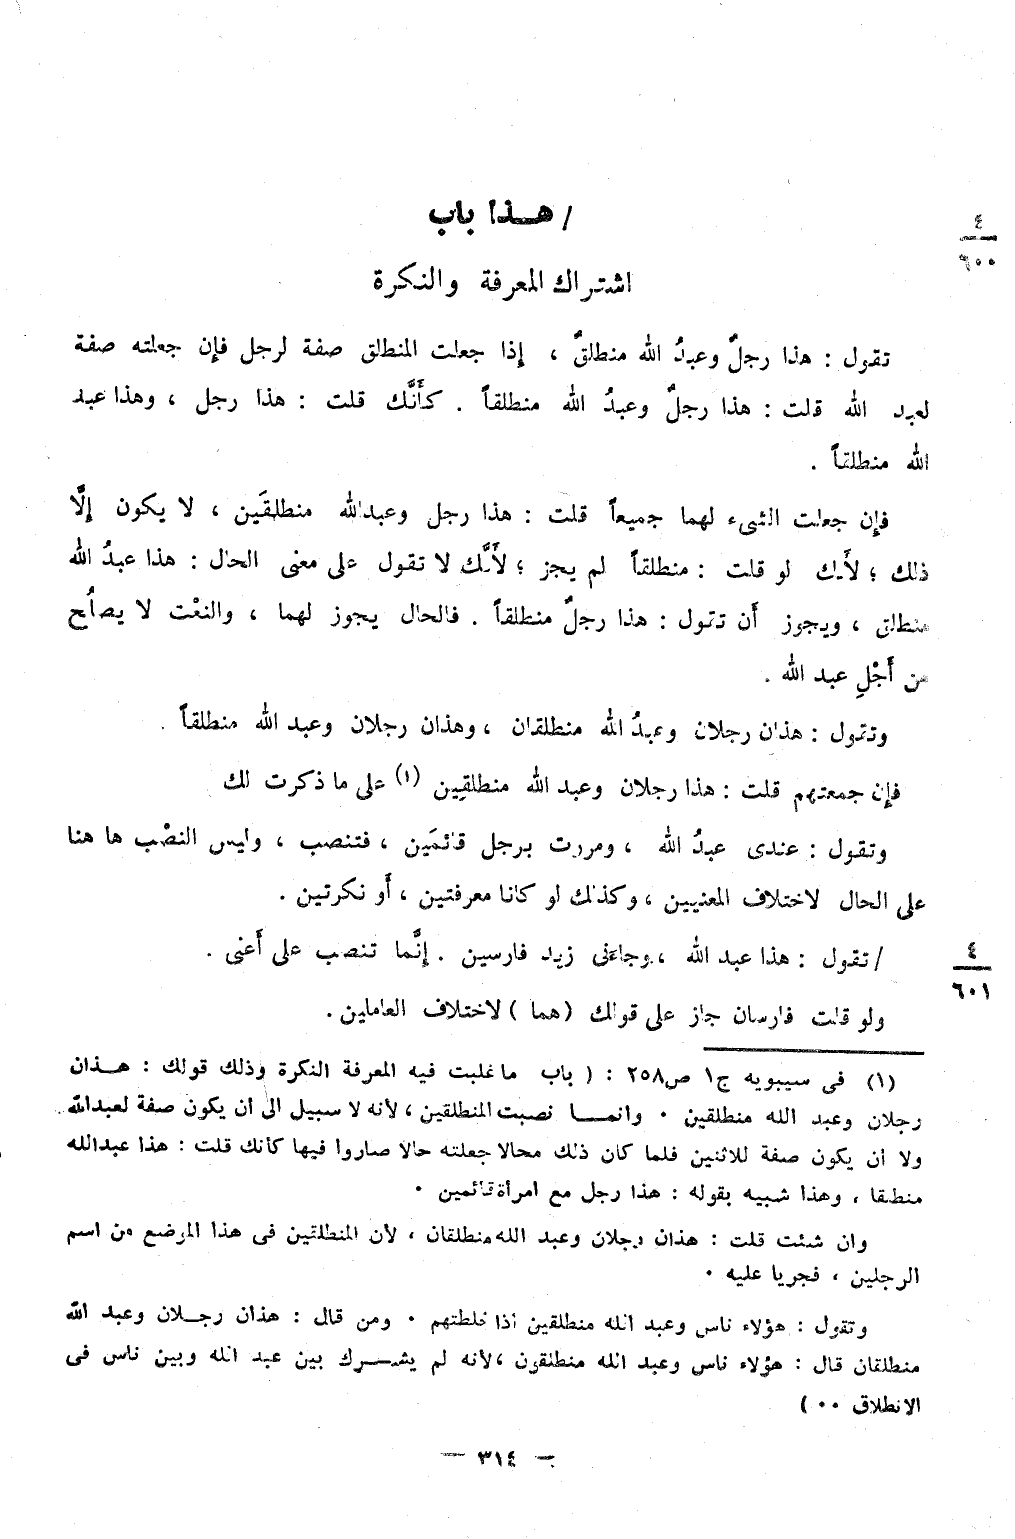 / هـذا باب
٤
٦٠٠
اشتراك المعرفة والنكرة
تقول : هذا رجلٌ وعبدُ الله منطلقٌ ، إذا جعلت المنطلق صفة لرجل فإن جعلته صفة
لعبد الله قلت : هذا رجلٌ وعبدُ الله منطلقاً . كأَنَّك قلت : هذا رجل ، وهذا عبد
الله منطلقاً .
فإن جعلت الشىء لهما جميعاً قلت : هذا رجل وعبدالله منطلقَين ، لا يكون إلَّا
ذلك ؛ لأَنك لو قلت : منطلقاً لم يجز ؛ لأَنَّك لا تقول على معنى الحال : هذا عبدُ الله
منطلق ، ويجوز أَن تقول : هذا رجلٌ منطلقاً . فالحال يجوز لهما ، والنعْت لا يصلُح
من أَجْلِ عبد الله .
وتقول : هذان رجلان وعبدُ الله منطلقان ، وهذان رجلان وعبد الله منطلقاً .
فإن جمعتهم قلت : هذا رجلان وعبد الله منطلقِين (١) على ما ذكرت لك
وتقول : عندى عبدُ الله ، ومررت برجل قائمَين ، فتنصب ، وليس النصْب ها هنا
على الحال لاختلاف المعنيين ، وكذلك لو كانا معرفتين ، أَو نكرتين .
/ تقول : هذا عبد الله ، وجاءنى زيد فارسين . إنَّما تنصب على أَعنى .
٤
٦٠١
ولو قلت فارسان جاز على قولك (هما ) لاختلاف العاملين .
(١) فى سيبويه ج١ ص٢٥٨ : ( باب ما غلبت فيه المعرفة النكرة وذلك قولك : هـذان
رجلان وعبد الله منطلقين ٠ وانمـا نصبت المنطلقين ، لأنه لا سبيل الى أن يكون صفة لعبدالله
ولا أن يكون صفة للاثنين فلما كان ذلك محالا جعلته حالا صاروا فيها كأنك قلت : هذا عبدالله
منطبقا ، وهذا شبيه بقوله : هذا رجل مع امرأة قائمين ٠
وان شئت قلت : هذان رجلان وعبد الله منطلقان ، لأن المنطلقين فى هذا الموضع من اسم
الرجلين ، فجريا عليه ٠
وتقول : هؤلاء ناس وعبد الله منطلقين اذا خلطتهم ٠ ومن قال : هذان رجـلان وعبد الله
منطلقان قال : هؤلاء ناس وعبد الله منطلقون ، لأنه لم يشـرك بين عبد الله وبين ناس فى
الانطلاق ٠٠ )
— ٣١٤ —